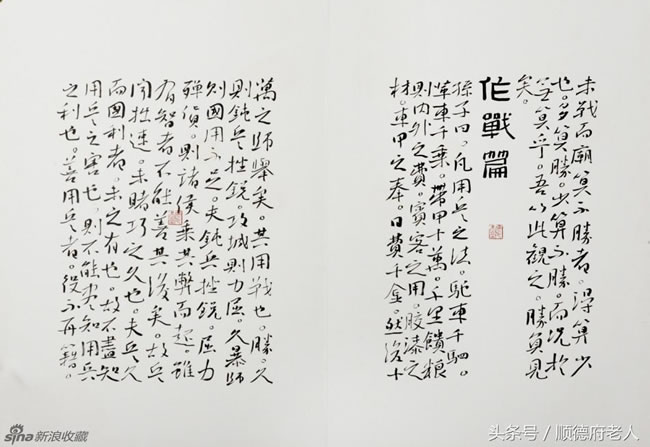 未戰而廟算不勝者。得算少
也。多算勝。少算不勝。而況於
無算乎。吾以此觀之。勝負見
矣。
作戰篇
孫子曰。凡用兵之法。馳車千駟。
革車千乘。帶甲十萬。千里饋粮
則內外之費。賓客之用。膠漆之
材。車甲之奉。日費千金。然後十
萬之師舉矣。其用戰也。勝。久
則鈍兵挫銳。攻城則力屈。久暴師
則國用不足。夫鈍兵挫銳。屈力
殫貨。則諸侯乘其弊而起。雖
有智者不能善其後矣。故兵
聞拙速。未睹巧之久也。夫兵久
而國利者。未之有也。故不盡知
用兵之害也則不能尽知用兵
之利也。善用兵者。役不再籍。
sina新浪收藏
头条号/顺德府老人